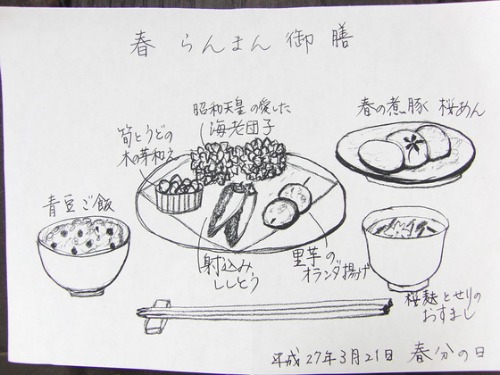 春らんまん御膳
昭和天皇の愛した
海老団子
春の煮豚 桜あん
筍とうどの
木の芽和え
青豆ご飯
射込み
ししとう
里芋の
オランダ揚げ
桜麩とせりの
おすまし
平成27年3月21日 春分の日